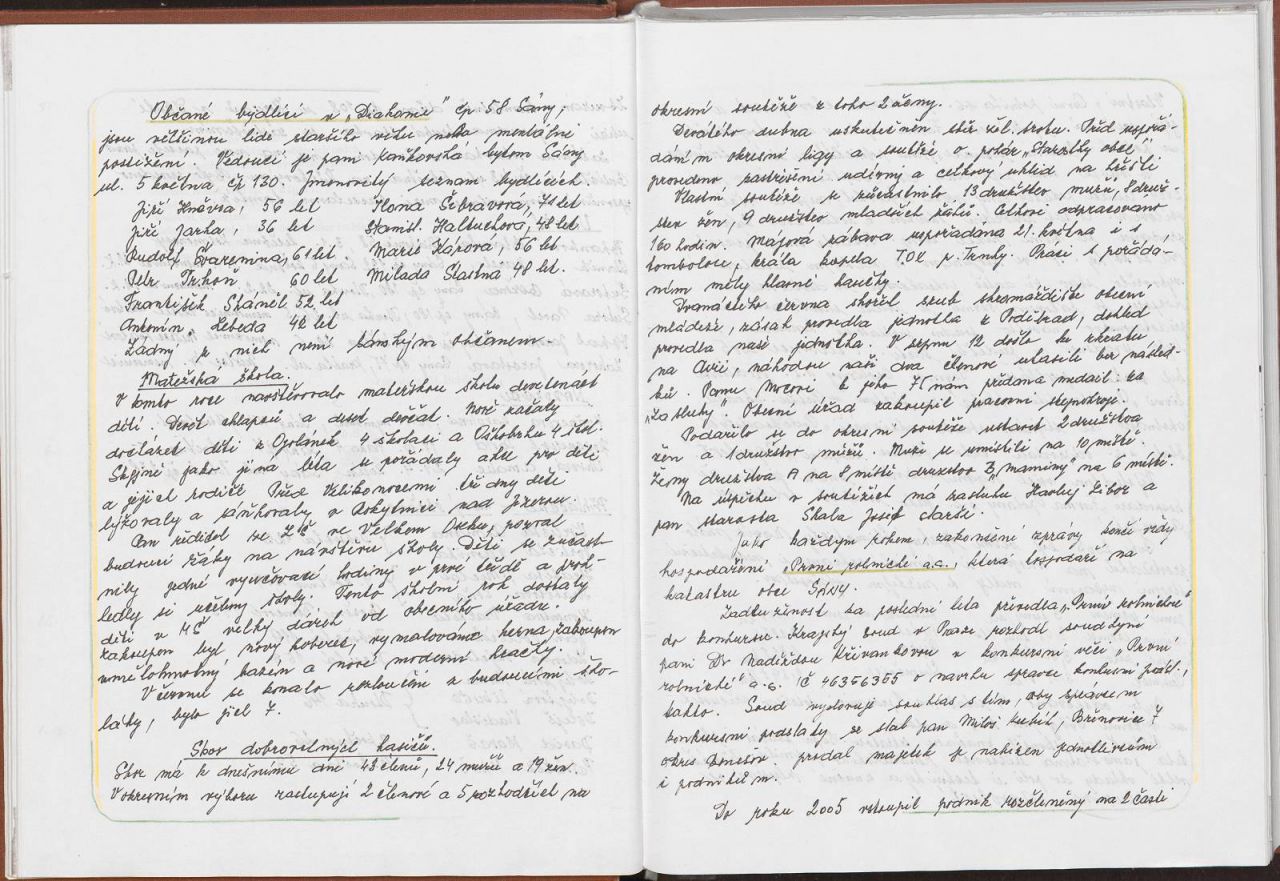 Občané bydlící v „Diakonii" čp 58 Sány,
jsou většinou lidé staršího věku nebo mentálně
postižení. Vedoucí je paní Kaňkovská bytem Sány
ul. 5 května čp 130. Jmenovitý seznam bydlících.
Jiří Hněvsa, 56 let Ilona Šebravová, 71 let
Jiří Jarka, 36 let Stanisl. Haltuchová, 48 let
Rudolf Švaremina, 61 let. Marie Kápová, 56 let
Petr Trkoň 60 let Milada Šťastná 48 let.
František Spáněl 52 let
Antonín Lebeda 42 let
Žádný z nich není sánským občanem.
Mateřská škola.
V tomto roce navštěvovalo mateřskou školu devatenáct
dětí. Devět chlapců a deset děvčat. Nově začaly
docházet děti z Opolánek 4 školáci a Oškobrhu 4 škol.
Stejně jako jiná léta se pořádaly akce pro děti
a jejich rodiče. Před Velikonocemi tři dny děti
lyžovaly a sáňkovaly v Rokytnici nad Jizerou.
Pan ředitel ze ZŠ ve Velkém Oseku, pozval
budoucí žáky na návštěvu školy. Děti se zúčast-
nily jedné vyučovací hodiny v prvé třídě a proh-
ledly si učebny školy. Tento školní rok dostaly
děti v MŠ velký dárek od obecního úřadu.
Zakoupen byl nový koberec, vymalována herna, zakoupen
umělohmotný bazén a nové moderní hračky.
V červnu se konalo rozloučení s budoucími ško-
láky, bylo jich 7.
Sbor dobrovolných hasičů.
Sbor má k dnešnímu dni 43 členů, 24 mužů a 19 žen.
V okresním výboru zastupují 2 členové a 5 rozhodčích na
okresní soutěže z toho 2 ženy.
Devátého dubna uskutečněn sběr žel. šrotu. Před uspořá-
dáním okresní ligy a soutěže o pohár „Starosty obce"
provedeno zastřešení udírny a celkový úklid na hřišti
Vlastní soutěže se zúčastnilo 13 družstev mužů, 8 druž-
stev žen, 9 družstev mladších žáků. Celkově odpracováno
160 hodin. Májová zábava uspořádána 21. května i s
tombolou, hrála kapela T.O.K. p. Trnky. Práci s pořádá-
ním měly hlavně kuchty.
Dvanáctého června shořel srub shromáždiště obecní
mládeže, zásah provedla jednotka z Poděbrad, dohled
provedla naše jednotka. V srpnu 12 došlo ke zkratu
na Avii, náhodou naši dva členové uhasili bez násled-
ků. Panu Mocovi k jeho 75 nám předána medaile za
„Zásluhy". Obecní úřad zakoupil pracovní stejnokroje.
Podařilo se do okresní soutěže ustavit 2 družstva
žen a 1 družstvo mužů. Muži se umístili na 10 místě.
Ženy družstva A na 8 místě družstvo B „maminy" na 6 místě.
Na úspěchu v soutěžích má zásluhu Havlej Libor a
pan starosta Skala Josef starší.
Jako každým rokem, zakončení zprávy končí vždy
hospodaření „První rolnické a.s., která hospodaří na
katastru obce SÁNY.
Zadluženost za poslední léta přivedla „První rolnickou"
do konkursu. Krajský soud v Praze rozhodl soudkyní
paní Dr Naděždou Křivánkovou v konkursní věci „První
rolnické" a.s. IČ 46356355 o návrhu správce konkursní podst.,
takto. Soud vyslovuje souhlas s tím, aby správcem
konkursní podstaty se stal pan Miloš Kubíč, Březovice 7
okres Benešov. prodal majetek je nabízen jednotlivcům
i podnikům.
Do roku 2005 vstoupil podnik rozčleněný na 2 části